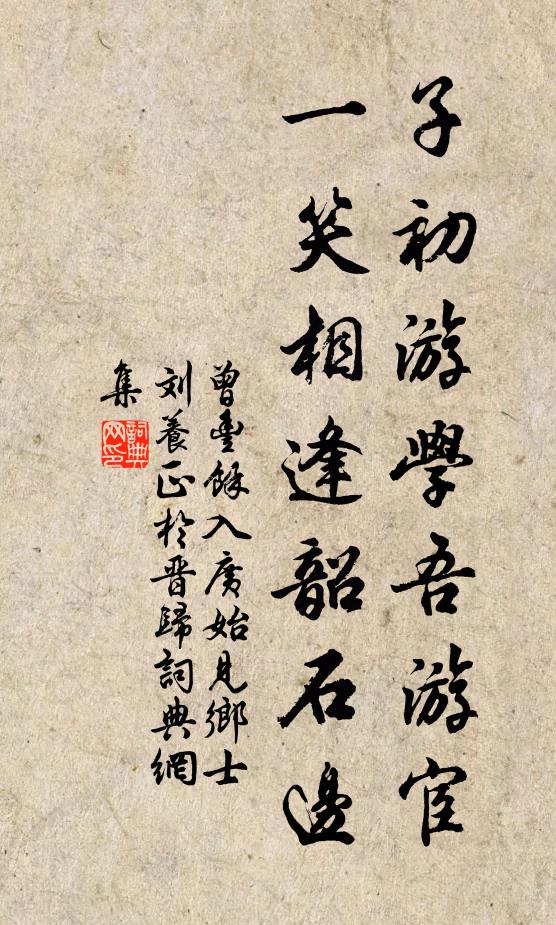 子初游學吾游宦
一笑相逢韶石邊
曾豐餘入廣始見鄉士
刘養正於晋歸詞典網
集
詞典
网印